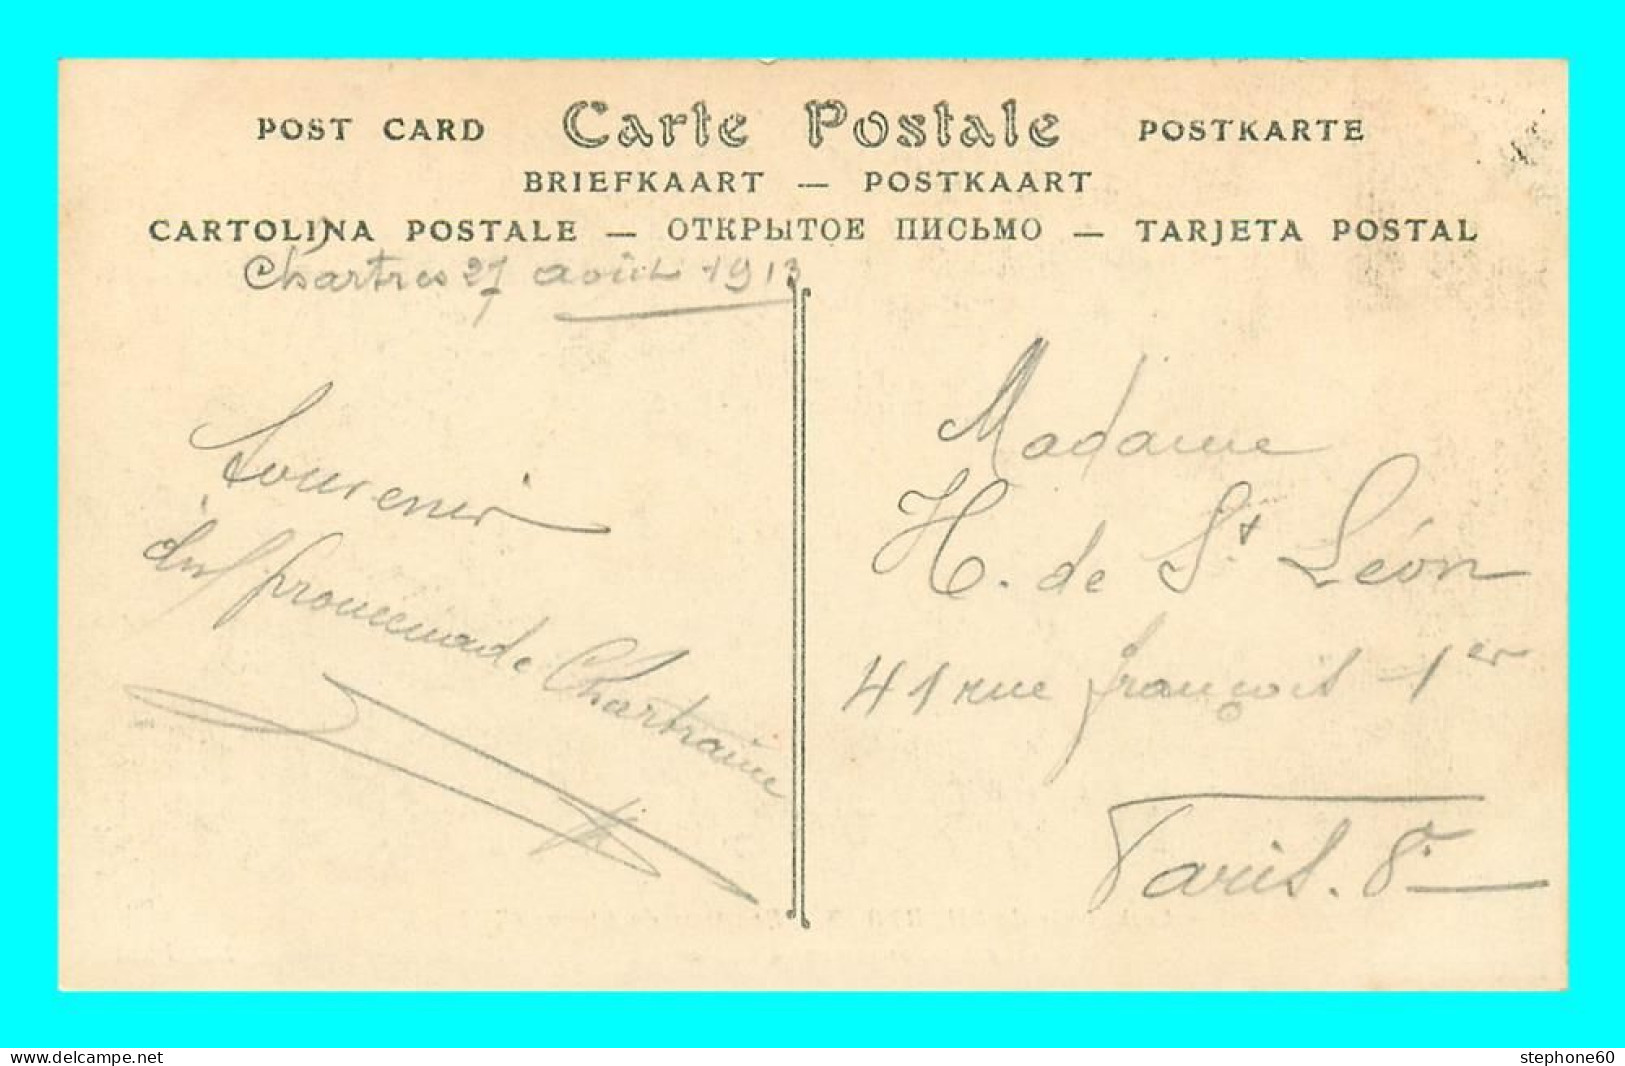 POST CARD Carte Postale POSTKARTE
BRIEFKAART — POSTKAART
CARTOLINA POSTALE — ОТКРЫТОЕ ПИСЬМО — TARJETA POSTAL
Chartres 27 août 1913
Souvenir
promenade Chartraine
Madame
H. de St Léon
41 rue François 1er
Paris. 8e
www.delcampe.net
stephone60